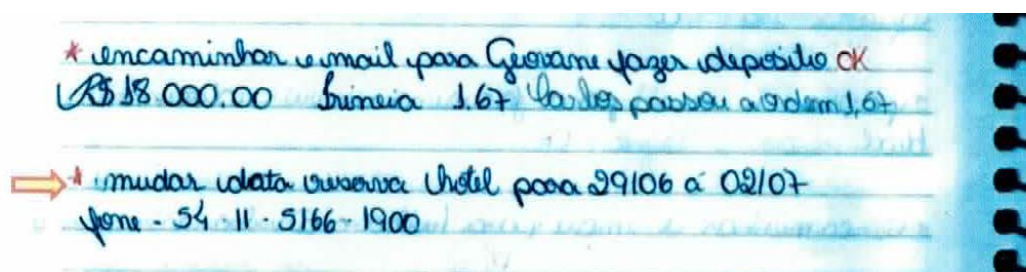 * encaminhar e-mail para Geovane fazer depósito OK
R$ 18.000.00 1.67 Carlos passou a ordem 1,67
* mudar data reserva hotel para 29/06 a 02/07
fone - 54 - 11 - 5166 - 1900